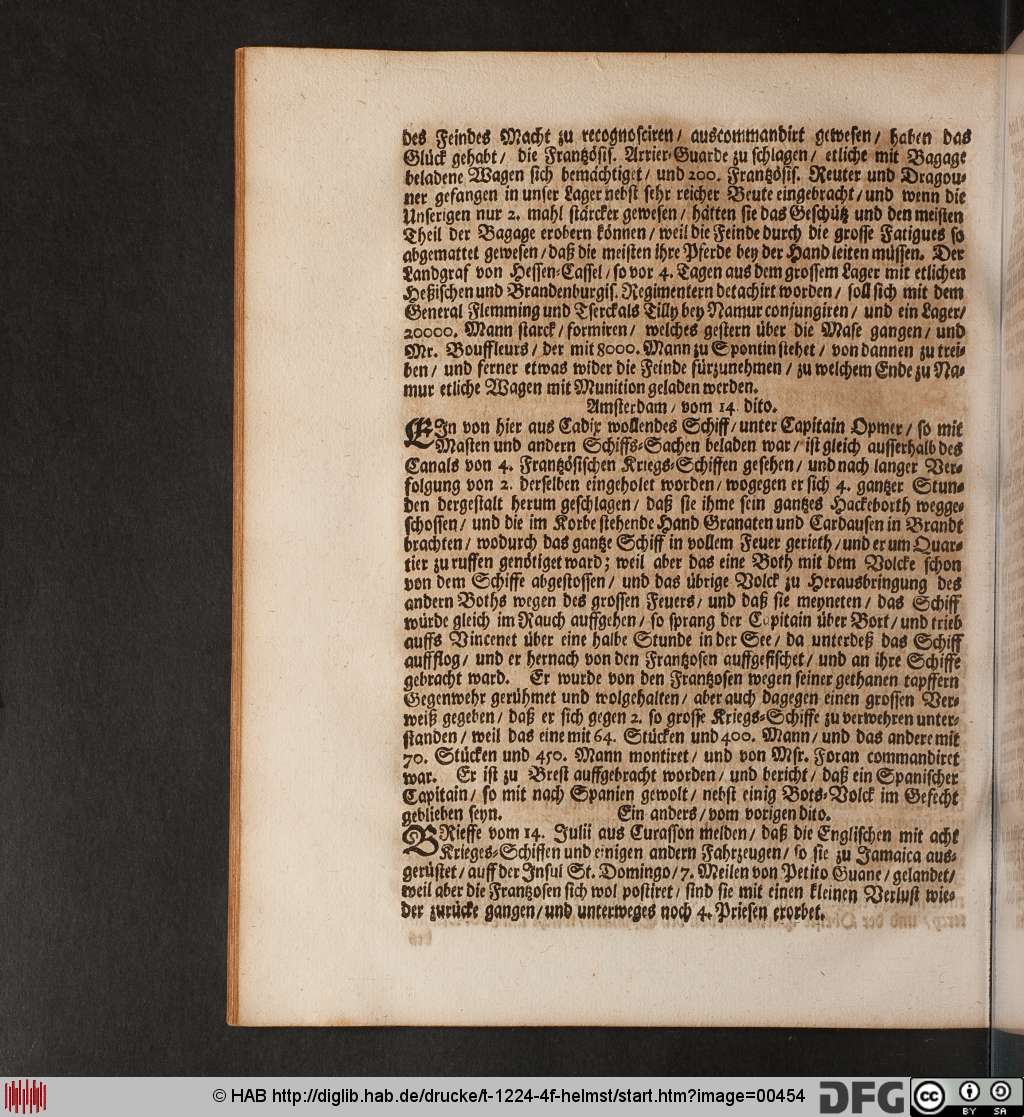 des Feindes Macht zu recognosciren / auscommandirt gewesen / haben das
Glück gehabt / die Frantzösis. Arrier-Guarde zu schlagen / etliche mit Bagage
beladene Wagen sich bemächtiget / und 200. Frantzösis. Reuter und Dragou-
ner gefangen in unser Lager nebst sehr reicher Beute eingebracht / und wenn die
Unserigen nur 2. mahl stärcker gewesen / hätten sie das Geschütz und den meisten
Theil der Bagage erobern können / weil die Feinde durch die grosse Fatigues so
abgemattet gewesen / daß die meisten ihre Pferde bey der Hand leiten müssen. Der
Landgraf von Hessen-Cassel / so vor 4. Tagen aus dem grossem Lager mit etlichen
Heßischen und Brandenburgis. Regimentern detachirt worden / soll sich mit dem
General Flemming und Tserckals Tilly bey Namur conjungiren / und ein Lager /
20000. Mann starck / formiren / welches gestern über die Mase gangen / und
Mr. Bouffleurs / der mit 8000. Mann zu Spontin stehet / von dannen zu trei-
ben / und ferner etwas wider die Feinde fürzunehmen / zu welchem Ende zu Na-
mur etliche Wagen mit Munition geladen werden.
Amsterdam / vom 14. dito.
EIn von hier aus Cadix wollendes Schiff / unter Capitain Opmer / so mit
Masten und andern Schiffs-Sachen beladen war / ist gleich ausserhalb des
Canals von 4. Frantzösischen Kriegs-Schiffen gesehen / und nach langer Ver-
folgung von 2. derselben eingeholet worden / wogegen er sich 4. gantzer Stun-
den dergestalt herum geschlagen / daß sie ihme sein gantzes Hackeborth wegge-
schossen / und die im Korbe stehende Hand Granaten und Cardausen in Brandt
brachten / wodurch das gantze Schiff in vollem Feuer gerieth / und er um Quar-
tier zu ruffen genötiget ward; weil aber das eine Both mit dem Volcke schon
von dem Schiffe abgestossen / und das übrige Volck zu Herausbringung des
andern Boths wegen des grossen Feuers / und daß sie meyneten / das Schiff
würde gleich im Rauch auffgehen / so sprang der Capitain über Bort / und trieb
auffs Vincenet über eine halbe Stunde in der See / da unterdeß das Schiff
auffflog / und er hernach von den Frantzosen auffgefischet / und an ihre Schiffe
gebracht ward. Er wurde von den Frantzosen wegen seiner gethanen tapffern
Gegenwehr gerühmet und wolgehalten / aber auch dagegen einen grossen Ver-
weiß gegeben / daß er sich gegen 2. so grosse Kriegs-Schiffe zu verwehren unter-
standen / weil das eine mit 64. Stücken und 400. Mann / und das andere mit
70. Stücken und 450. Mann montiret / und von Msr. Foran commandiret
war. Er ist zu Brest auffgebracht worden / und bericht / daß ein Spanischer
Capitain / so mit nach Spanien gewolt / nebst einig Bots-Volck im Gefecht
geblieben seyn. Ein anders / vom vorigen dito.
BRieffe vom 14. Julii aus Curasson melden / daß die Englischen mit acht
Krieges-Schiffen und einigen andern Fahrzeugen / so sie zu Jamaica aus-
gerüstet / auff der Insul St. Domingo / 7. Meilen von Petito Guane / gelandet /
weil aber die Frantzosen sich wol postiret / sind sie mit einen kleinen Verlust wie-
der zurücke gangen / und unterweges noch 4. Priesen erorbet.
© HAB http://diglib.hab.de/drucke/t-1224-4f-helmst/start.htm?image=00454
DFG
cc BY SA